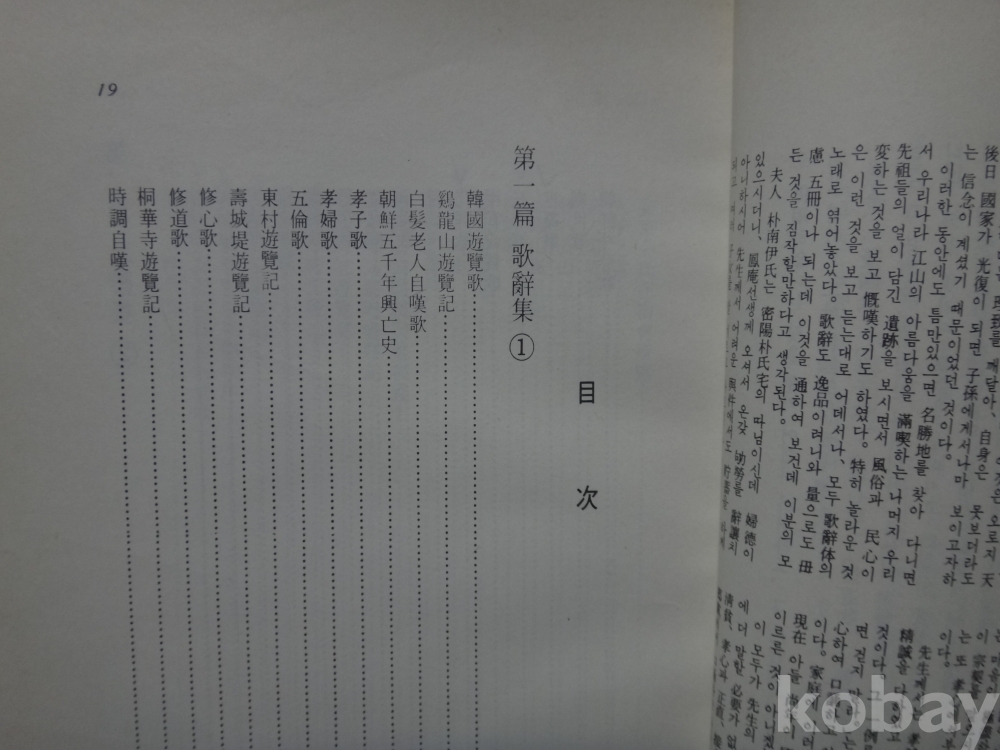 後日 國家가 光復이 되면 子孫에게서나마 보이고자하
는 信念이 계셨기 때문이었던 것이다.
이러한 동안에도 틈만있으면 名勝地를 찾아 다니면
서 우리나라 江山의 아름다움을 滿喫하는 나머지 우리
先祖들의 얼이 담긴 遺跡을 보시면서 風俗과 民心이
変하는 것을 보고 慨嘆하기도 하였다. 特히 놀라운 것
은 이런 것을 보고 듣는대로 어데서나, 모두 歌辭体의
노래로 엮어놓았다. 歌辭도 逸品이려니와 量으로도 毌
慮 五冊이나 되는데 이것을 通하여 보건데 이분의 모
든 것을 짐작할만하다고 생각된다.
夫人 朴南伊氏는 密陽朴氏宅의 따님이신데 婦德이
있으시더니, 鳳庵선생께 오셔서 온갖 劬勞를 辭讓치
아니하시어 先生께서 어려운
이다.
先生께서
精誠을 다하
것이다. 그
면 걷지
心하여
이다. 家庭
現在 아들
이르른 것이 아니겠
이 모두가 先生의
에 더 말할 必要가 없
清貧, 孝心과 正直
目 次
第一篇 歌辭集 ①
韓國遊覽歌
鷄龍山遊覽記
白髮老人自嘆歌
朝鮮五千年興亡史
孝子歌
孝婦歌
五倫歌
東村遊覽記
壽城堤遊覽記
修心歌
修道歌
桐華寺遊覽記
時調自嘆
19
kobay